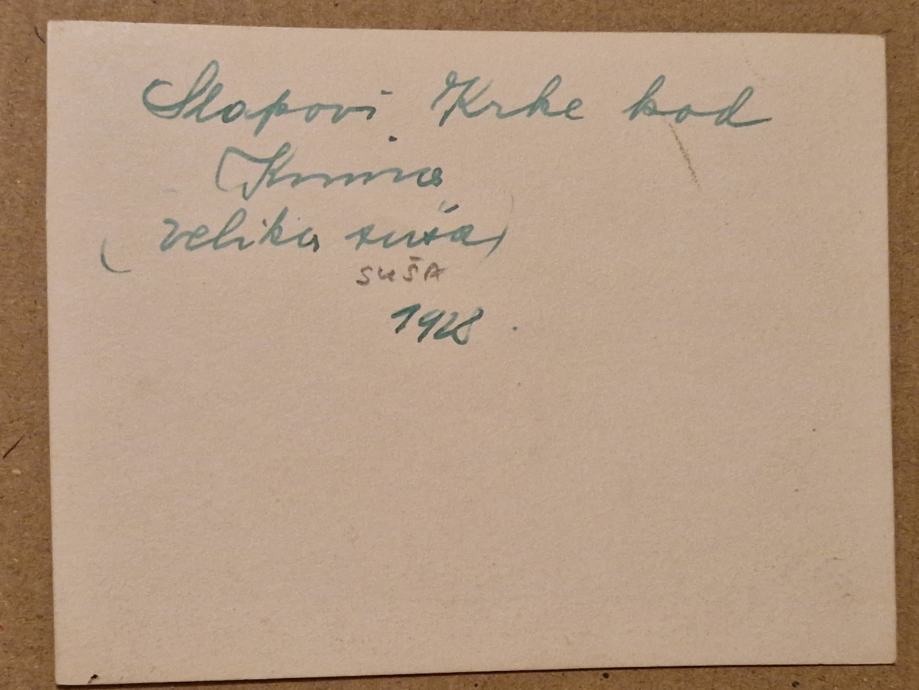 Slapovi Krke kod
Knina
(velika suša)
SUŠA
1928.